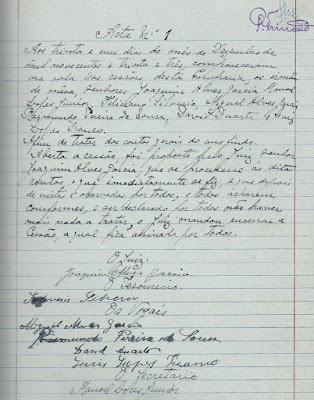 Acta Nº 1
Aos trinta e um dias do mês de Dezembro de
mil novecentos e trinta e três, compareceram
na sala das cessões, desta Confraria, os irmãos
de mesa, Senhores Joaquim Alves Garcia, Manoel
Lopes Junior, Feliciano Silverio, Miguel Alves Garcia
Raymundo Pereira de Sousa, David Duarte e Luiz
Lopes Franco.
Afim de tratar das contas gerais do ano findo.
Aberta a cessão foi proposto pelo Juiz, Senhor
Joaquim Alves Garcia, que se procedesse ás ditas
contas, o que imediatamente se fez, e que depois
de vistas e observadas por todos, e todos acharem
conformes, e ser declarado por todos não haver
mais nada a tratar, o Juiz mandou encerrar a
Cessão, a qual fica assinada por todos.
O Juiz.
Joaquim Alves Garcia
O Tesoureiro
Os Vogais
Miguel Alves Garcia
Raymundo Pereira de Sousa
David Duarte
Luis Lopes Franco
O Secretario
Manoel Lopes Junior